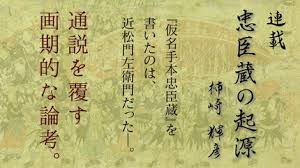 連載
忠臣蔵の起源
柿崎輝彦
『仮名手本忠臣蔵』を
書いたのは、
近松門左衛門だった―。
通説を覆す
画期的な論考。